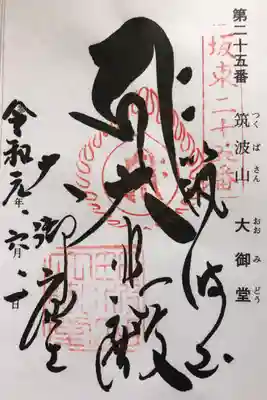 第二十五番 筑波山 大御堂
つくばさん おおみどう
坂東二十五番
筑波山
大悲殿
大御堂
令和元年六月一日